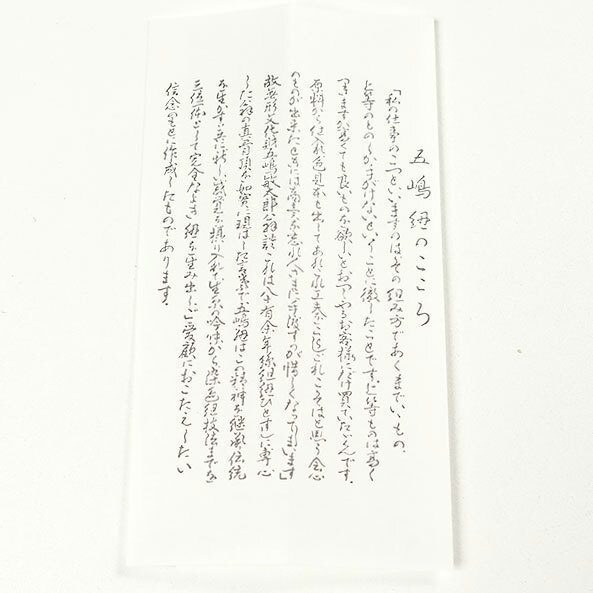 五嶋紐のこころ
「私の仕事のこつといいますのは、その組み方であくまでいゝもの、
上等のものしか手がけないといふことに徹したことです。上等ものは高く
つきますが、高くても良いものが欲しいとおっしやるお客様にだけ買っていたゞくんです。
原料から仕入れ、色見本も出してあれこれ工夫をこらしこれこそはと思う会心
のものが出来たときには商売を忘れ人さまに手渡すのが惜しくなってしまいます」
故無形文化財五嶋敏太郎翁談 これは八十有余年絲組紐ひとすじに専心
した翁の真骨頂を如実に現はした言葉で五嶋紐はこの精神を継承、伝統
を生かすと共に新しい感覚を摂り入れて生糸の吟味から染色組技法までを
三位一体として完全なよき紐を生み出しご愛顧におこたえしたい
信念のもとに作成したものであります。